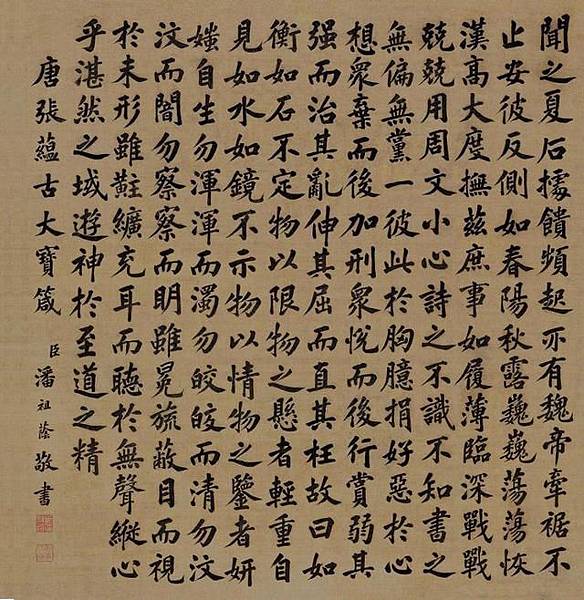 聞之夏后據饋頻起亦有魏帝牽裾不
止安彼反側如春陽秋露巍巍蕩蕩恢
漢高大度撫茲庶事如履薄臨深戰戰
兢兢用周文小心詩之不識不知書之
無偏無黨一彼此於胸臆捐好惡於心
想衆棄而後加刑衆悅而後行賞弱其
强而治其亂伸其屈而直其枉故曰如
衡如石不定物以限物之懸者輕重自
見如水如鏡不示物以情物之鑒者妍
媸自生勿渾渾而濁勿皎皎而清勿汶
汶而闇勿察察而明雖冕旒蔽目而視
於未形雖黈纊充耳而聽於無聲縱心
乎湛然之域遊神於至道之精
唐張蘊古大寶箴 臣潘祖蔭敬書